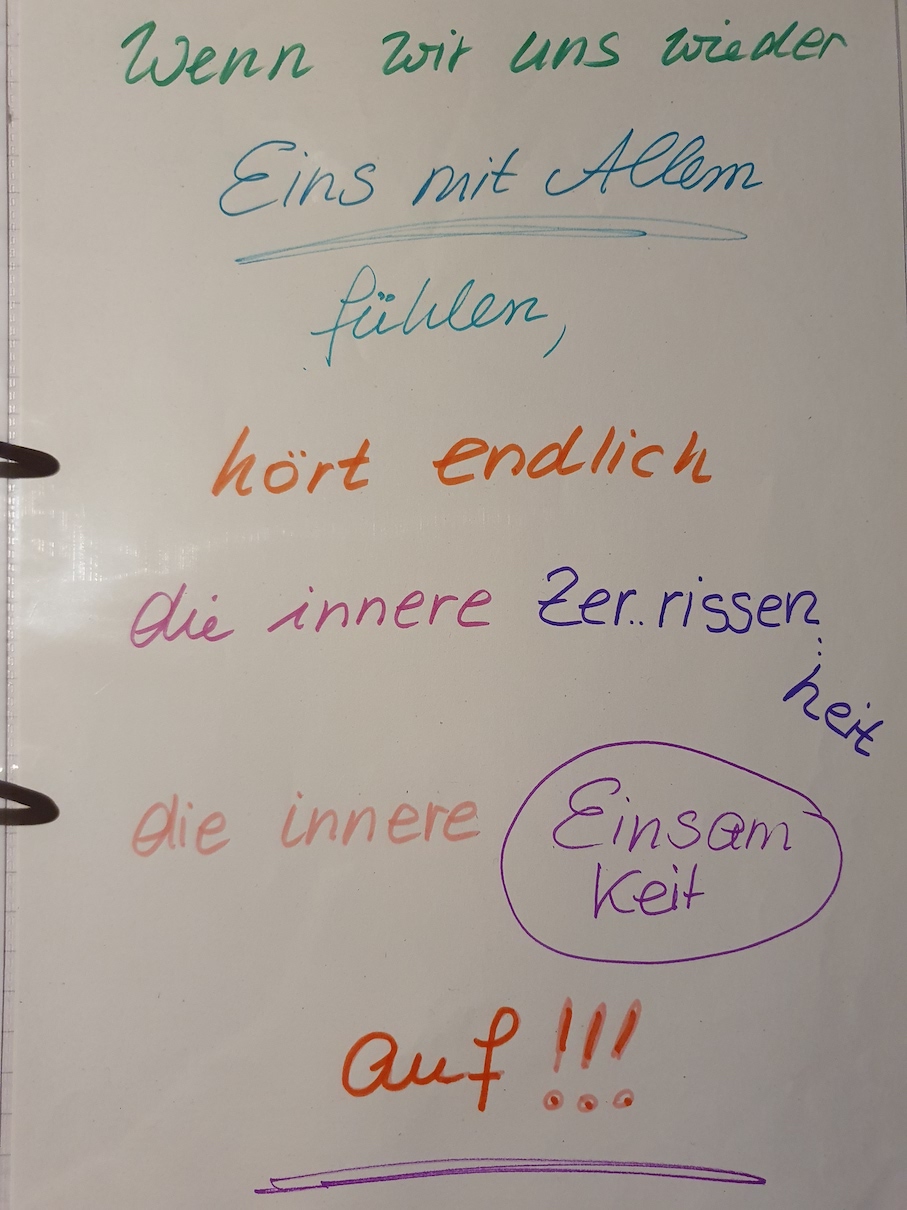 Wenn wir uns wieder
Eins mit Allem
fühlen,
hört endlich
die innere Zer..rissen
heit
die innere Einsam
Keit
auf!!!